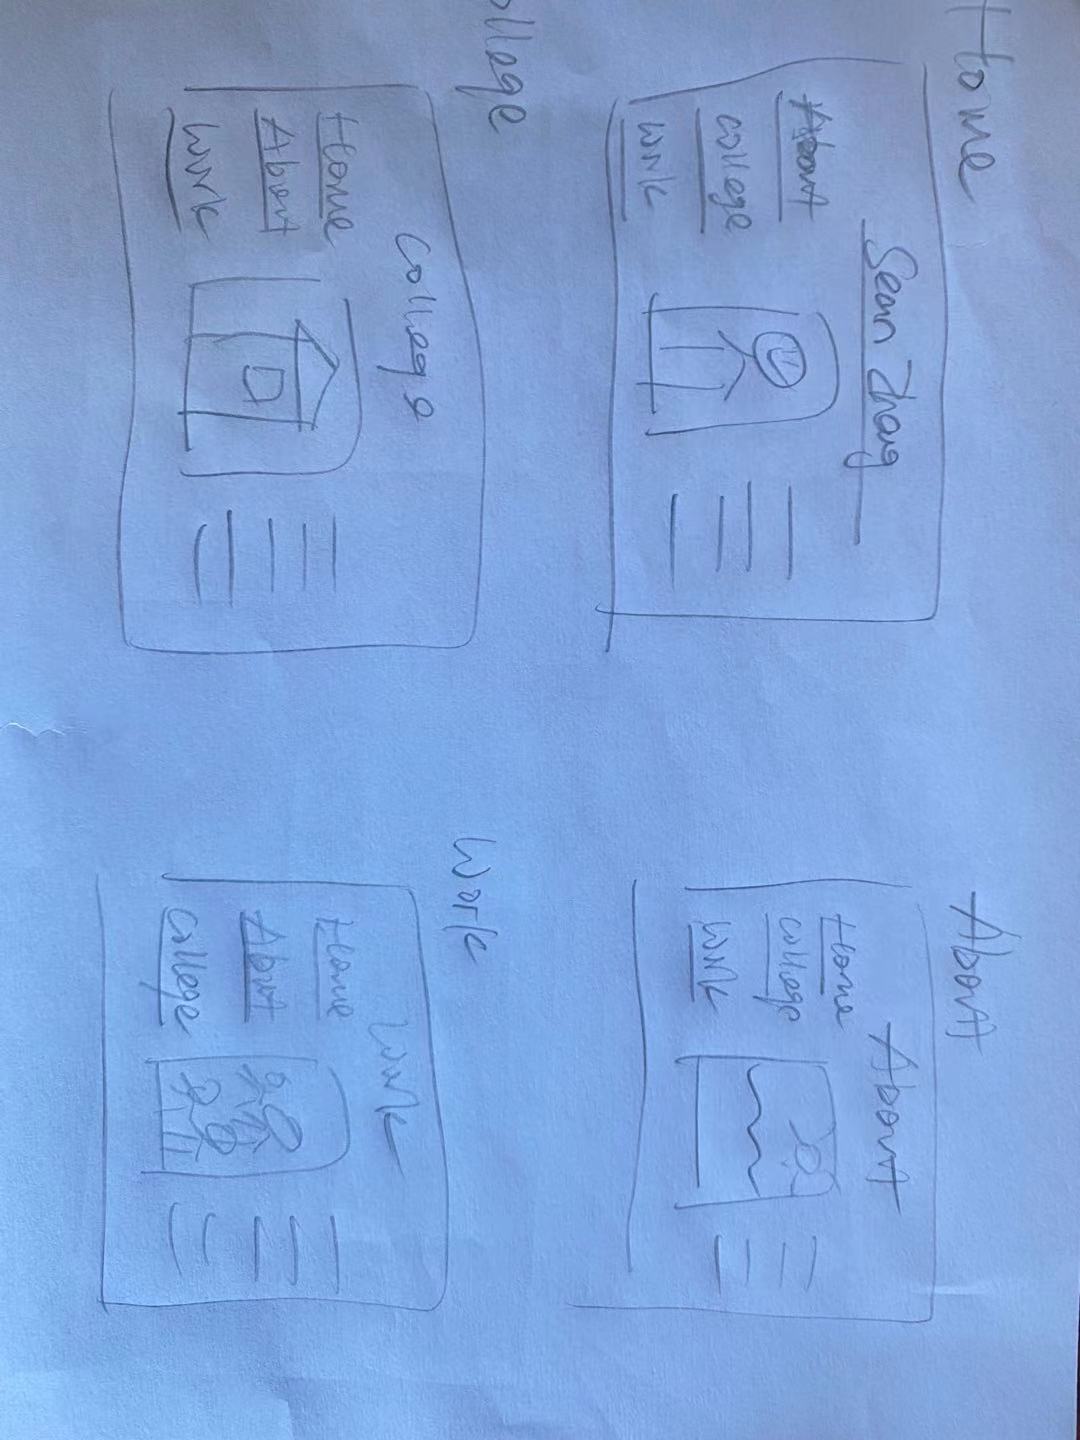 Home
Sean Zhang
About
college
work
About
About
Home
college
work
ollege
college
Home
About
work
Work
work
Home
About
college